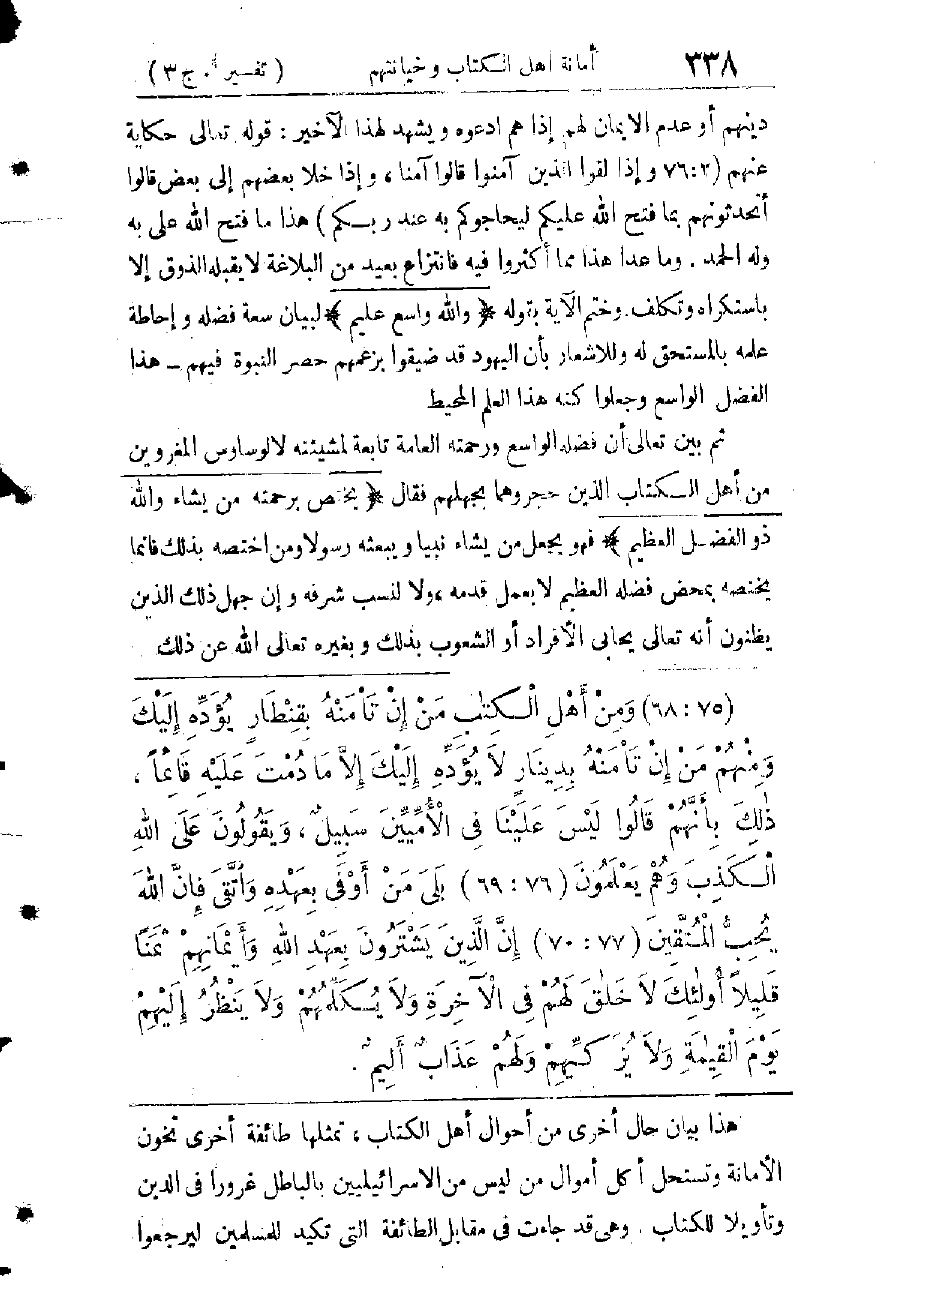 ٣٣٨ أمانة أهل الكتاب وخيانتهم ( تفسير . ج ٣ )
دينهم أو عدم الايمان لهم إذا هم ادعوه ويشهد لهذا الآخير : قوله تعالى حكاية
عنهم (٢:٧٦ وإذا لقوا الذين آمنوا قالوا آمنا ، وإذا خلا بعضهم إلى بعض قالوا
أتحدثونهم بما فتح الله عليكم ليحاجوكم به عند ربكم ) هذا ما فتح الله على به
وله الحمد . وما عدا هذا مما أكثروا فيه فانتزاع بعيد من البلاغة لا يقبله الذوق إلا
باستكراه وتكلف . وختم الآية بقوله ﴿ والله واسع عليم ﴾ لبيان سعة فضله وإحاطة
علمه بالمستحق له وللاشعار بأن اليهود قد ضيقوا بزعمهم حصر النبوة فيهم ــ هذا
الفضل الواسع وجعلوا كنه هذا العلم المحيط
ثم بين تعالى أن فضله الواسع ورحمته العامة تابعة لمشيئته لا لوساوس المغرورين
من أهل الكتاب الذين حجروهما بجهلهم فقال ﴿ يختص برحمته من يشاء والله
ذو الفضل العظيم ﴾ فهو يجعل من يشاء نبيا ويبعثه رسولا ومن اختصه بذلك فانما
يختصه بمحض فضله العظيم لا بعمل قدمه ، ولا لنسب شرفه وإن جهل ذلك الذين
يظنون أنه تعالى يحابى الأفراد أو الشعوب بذلك وبغيره تعالى الله عن ذلك
(٦٨:٧٥) وَمِنْ أَهْلِ الْكِتٰبِ مَنْ إِنْ تَأْمَنْهُ بِقِنْطَارٍ يُؤَدِّهِ إِلَيْكَ
وَمِنْهُمْ مَنْ إِنْ تَأْمَنْهُ بِدِينَارٍ لاَ يُؤَدِّهِ إِلَيْكَ إِلاَّ مَا دُمْتَ عَلَيْهِ قَائِماً ،
ذٰلِكَ بِأَنَّهُمْ قَالُوا لَيْسَ عَلَيْنَا فِى الْأُمِّيِّينَ سَبِيلٌ ، وَيَقُولُونَ عَلَى اللهِ
الْكَذِبَ وَهُمْ يَعْلَمُونَ (٦٩:٧٦) بَلَى مَنْ أَوْفَى بِعَهْدِهِ وَاتَّقَى فَإِنَّ اللهَ
يُحِبُّ الْمُتَّقِينَ (٧٠:٧٧) إِنَّ الَّذِينَ يَشْتَرُونَ بِعَهْدِ اللهِ وَأَيْمَانِهِمْ ثَمَنًا
قَلِيلاً أُولٰئِكَ لاَ خَلٰقَ لَهُمْ فِى الْآخِرَةِ وَلاَ يُكَلِّمُهُمْ وَلاَ يَنْظُرُ إِلَيْهِمْ
يَوْمَ الْقِيٰمَةِ وَلاَ يُزَكِّيهِمْ وَلَهُمْ عَذَابٌ أَلِيمٌ .
هذا بيان حال أخرى من أحوال أهل الكتاب ، تمثلها طائفة أخرى تخون
الأمانة وتستحل أكل أموال من ليس من الاسرائيليين بالباطل غرورا فى الدين
وتأويلا للكتاب . وهى قد جاءت فى مقابل الطائفة التى تكيد للمسلمين ليرجعوا